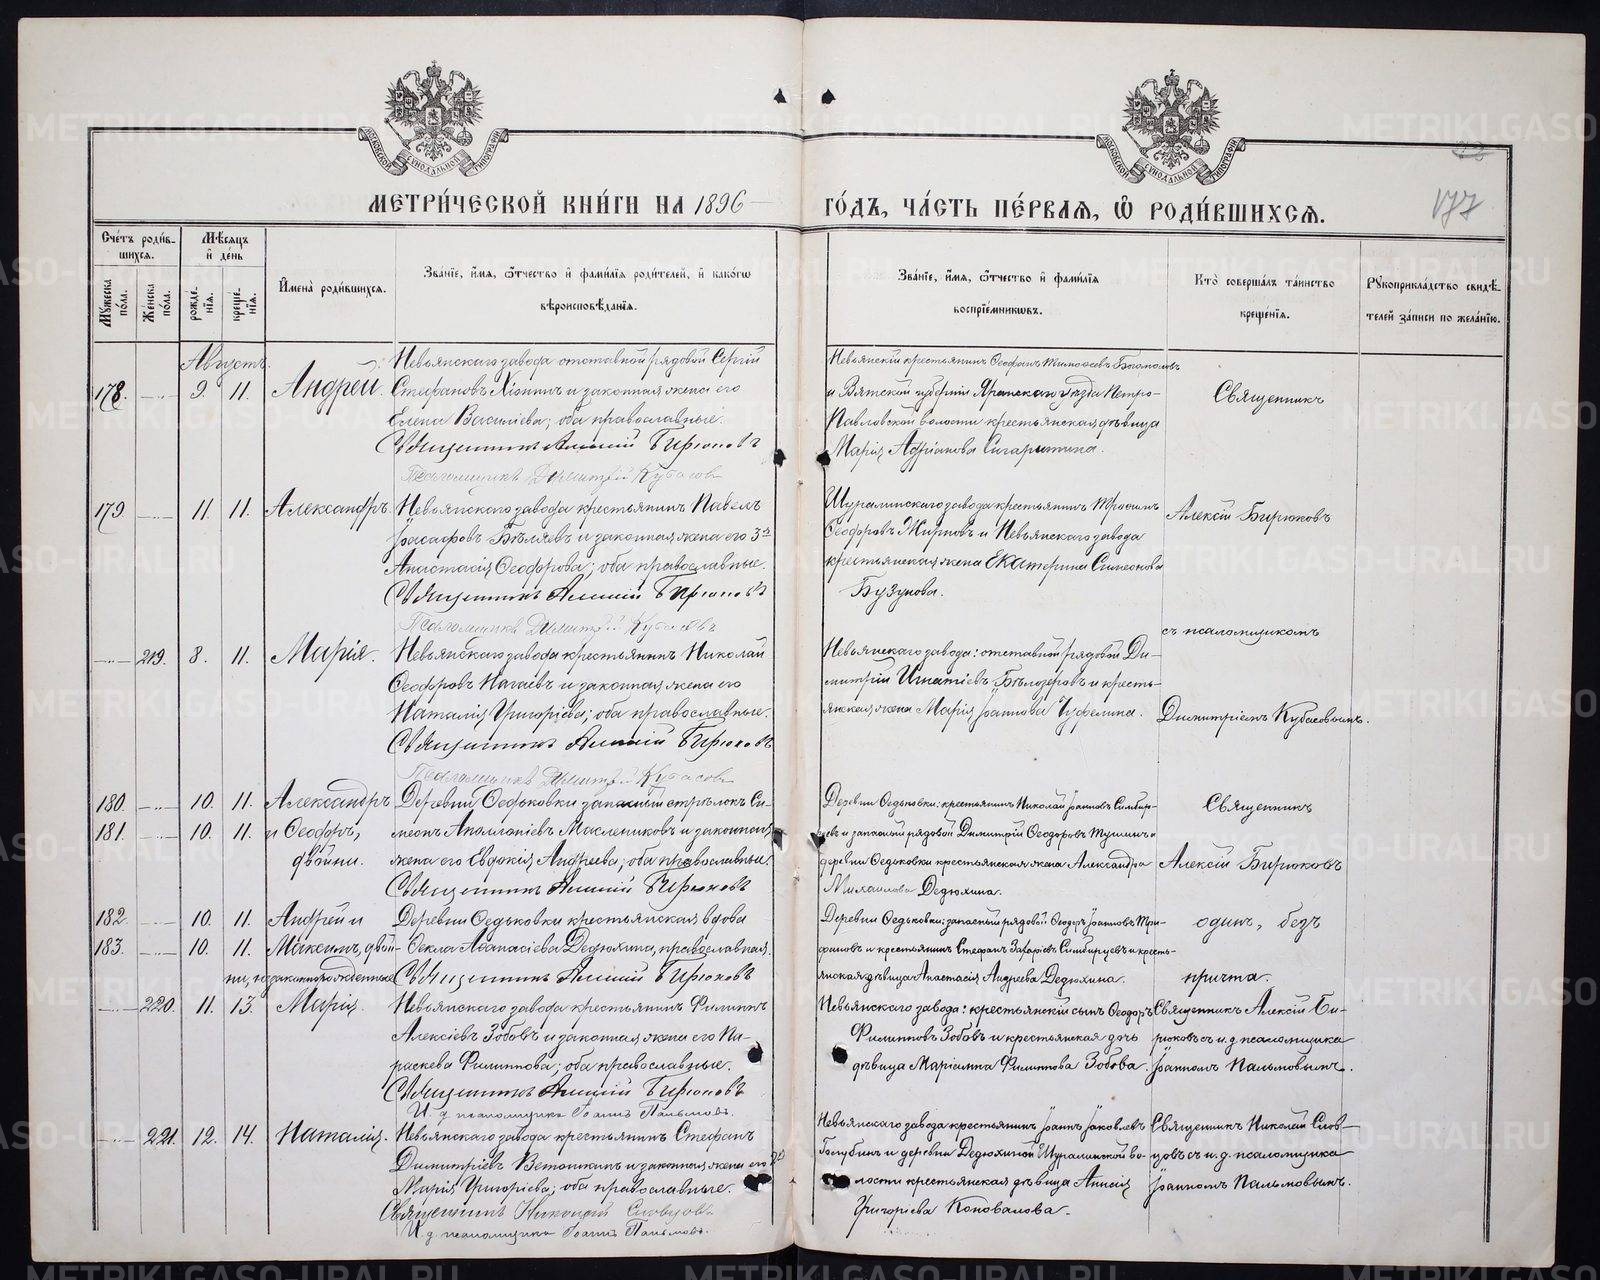 МЕТРИ́ЧЕСКОЙ КНИ́ГИ НА 1896
ГО́ДЪ, ЧА́СТЬ ПЕ́РВАЯ, Ѡ҆ РОДИ́ВШИХСЯ.
177
Сче́тъ роди́в-
шихся.
Мѣ́сяцъ
и҆ де́нь
Мꙋжеска по́ла.
Женска по́ла.
рожде́-
нїя.
креще́-
нїя.
И҆мена̀ роди́вшихся.
Зва́нїе, и҆́мя, ѻ҆́тчество и҆ фами́лїя роди́телей, и҆ како́гѡ
вѣроисповѣ́данїя.
Зва́нїе, и҆́мя, ѻ҆́тчество и҆ фами́лїя
воспрїе́мникѡвъ.
Кто̀ соверша́лъ та́инство
креще́нїя.
Рꙋкоприкла́дство свидѣ́-
телей за́писи по жела́нїю.
Августъ.
178. 9. 11. Андрей.
Невьянскаго завода отставной рядовой Сергій
Стефановъ Хіонинъ и законная жена его
Елена Василіева; оба православные.
Священникъ Алексій Бирюковъ
Псаломщикъ Димитрій Кубасовъ
Невьянскій крестьянинъ Ѳеофанъ Тимоѳеевъ
и Вятской губерніи Яранскаго уѣзда Петро-
Павловской волости крестьянская дѣвица
Марія Адріанова
Священникъ
179. 11. 11. Александръ.
Невьянскаго завода крестьянинъ Павелъ
Іоасафовъ Бѣляевъ и законная жена его 3ᵃ
Анастасія Ѳеодорова; оба православные.
Священникъ Алексій Бирюковъ
Псаломщикъ Димитрій Кубасовъ
Шуралинскаго завода крестьянинъ Трофимъ
Ѳеодоровъ Жирновъ и Невьянскаго завода
крестьянская жена Екатерина Симеонова
Бузунова.
Алексій Бирюковъ
съ псаломщикомъ
219. 8. 11. Марія.
Невьянскаго завода крестьянинъ Николай
Ѳеодоровъ Нагаевъ и законная жена его
Наталія Григоріева; оба православные.
Священникъ Алексій Бирюковъ
Псаломщикъ Димитрій Кубасовъ
Невьянскаго завода: отставной рядовой Ди-
митрій Игнатіевъ Бѣлозеровъ и кресть-
янская жена Марія Іоаннова
Димитріемъ Кубасовымъ.
180. 10. 11. Александръ
181. 10. 11. и Ѳеодоръ,
двойни.
Деревни Ѳедьковки запасный стрѣлокъ Си-
меонъ Аполлоніевъ Маслениковъ и законная
жена его Евдокія Андреева; оба православные.
Священникъ Алексій Бирюковъ
Деревни Ѳедьковки: крестьянинъ Николай Іоанновъ Симбир-
цевъ и запасный рядовой Димитрій Ѳеодоровъ Тушинъ и
деревни Ѳедьковки крестьянская жена Александра
Михаилова Дедюхина.
Священникъ
Алексій Бирюковъ
182. 10. 11. Андрей и
183. 10. 11. Максимъ, двой-
ни, незаконнорожденные
Деревни Ѳедьковки крестьянская вдова
Ѳекла Аѳанасіева Дедюхина, православная.
Священникъ Алексій Бирюковъ
Деревни Ѳедьковки: запасный рядовой Ѳеодоръ Іоанновъ Три-
фановъ и крестьянинъ Стефанъ Захаріевъ Симбирцевъ и кресть-
янская дѣвица Анастасія Андреева Дедюхина.
одинъ, безъ
причта.
220. 11. 13. Марія.
Невьянскаго завода крестьянинъ Филиппъ
Алексіевъ Зобовъ и законная жена его Па-
раскева Филиппова; оба православные.
Священникъ Алексій Бирюковъ
И. д. псаломщика Іоаннъ Пальмовъ.
Невьянскаго завода: крестьянскій сынъ Ѳеодоръ
Филипповъ Зобовъ и крестьянская дочь
дѣвица Маріамна Филиппова Зобова.
Священникъ Алексій Би-
рюковъ съ и. д. псаломщика
Іоанномъ Пальмовымъ.
221. 12. 14. Наталія.
Невьянскаго завода крестьянинъ Стефанъ
Димитріевъ Ветошкинъ и законная жена его
Марія Григоріева; оба православные.
Священникъ Николай Словцовъ
И. д. псаломщика Іоаннъ Пальмовъ.
Невьянскаго завода крестьянинъ Іоаннъ Іаковлевъ
Голубинъ и деревни Дедюхиной Шуралинской во-
лости крестьянская дѣвица Анисія
Григоріева Коновалова.
Священникъ Николай Слов-
цовъ съ и. д. псаломщика
Іоанномъ Пальмовымъ.
METRIKI.GASO-URAL.RU